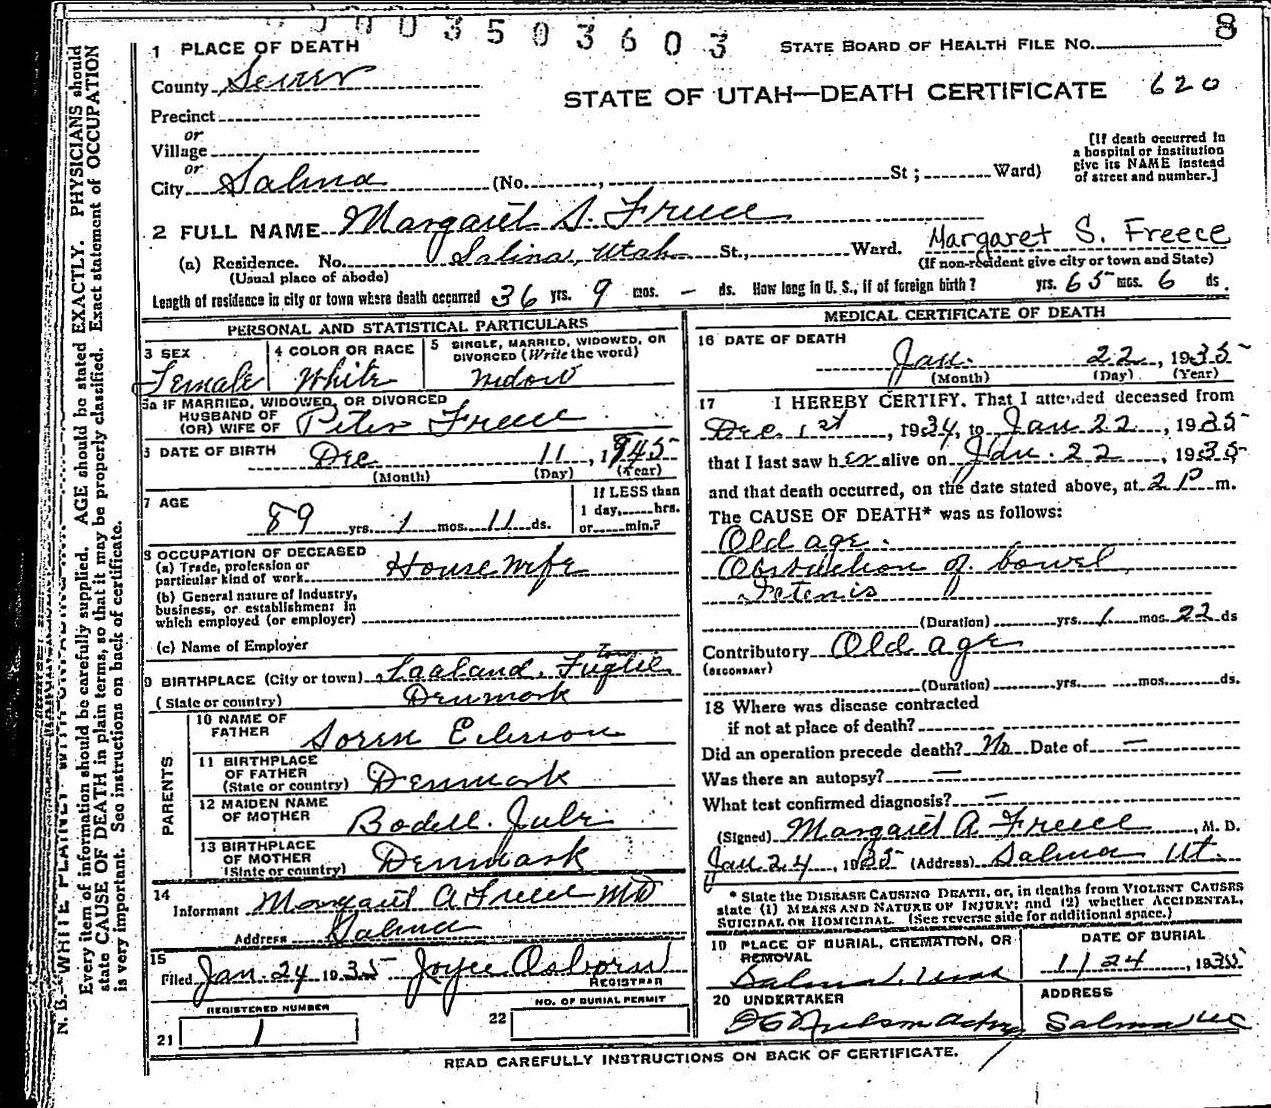 0003503603
8
1 PLACE OF DEATH
STATE BOARD OF HEALTH FILE NO.
County Sevier
STATE OF UTAH—DEATH CERTIFICATE 620
Precinct
or
Village
or
City Salina (No. , St ; Ward)
[If death occurred in
a hospital or institution
give its NAME instead
of street and number.]
2 FULL NAME Margaret S. Freece
Margaret S. Freece
(a) Residence. No. Salina, Utah St., Ward.
(Usual place of abode)
(If non-resident give city or town and State)
Length of residence in city or town where death occurred 36 yrs. 9 mos. - ds. How long in U. S., if of foreign birth? yrs. 65 mos. 6 ds.
PERSONAL AND STATISTICAL PARTICULARS
3 SEX
Female
4 COLOR OR RACE
White
5 SINGLE, MARRIED, WIDOWED, OR
DIVORCED (Write the word)
Widow
5a IF MARRIED, WIDOWED, OR DIVORCED
HUSBAND OF
(OR) WIFE OF Peter Freece
6 DATE OF BIRTH Dec 11, 1845
(Month) (Day) (Year)
7 AGE
89 yrs. 1 mos. 11 ds.
If LESS than
1 day, hrs.
or min.?
8 OCCUPATION OF DECEASED
(a) Trade, profession or
particular kind of work House wife
(b) General nature of industry,
business, or establishment in
which employed (or employer)
(c) Name of Employer
9 BIRTHPLACE (City or town) Laaland, Fuglie
(State or country) Denmark
PARENTS
10 NAME OF
FATHER Soren
11 BIRTHPLACE
OF FATHER
(State or country) Denmark
12 MAIDEN NAME
OF MOTHER Bodell
13 BIRTHPLACE
OF MOTHER
(State or country) Denmark
14
Informant Margaret A Freece MD
Address Salina
15
Filed Jan. 24 1935 Joyce Osborn
REGISTRAR
REGISTERED NUMBER
21 1
NO. OF BURIAL PERMIT
22
MEDICAL CERTIFICATE OF DEATH
16 DATE OF DEATH
Jan. 22, 1935
(Month) (Day) (Year)
17 I HEREBY CERTIFY, That I attended deceased from
Dec. 1st, 1934, to Jan 22, 1935
that I last saw her alive on Jan. 22, 1935
and that death occurred, on the date stated above, at 2 P m.
The CAUSE OF DEATH* was as follows:
Old age.
Obstruction of bowel
(Duration) yrs. 1 mos. 22 ds
Contributory Old age
(SECONDARY)
(Duration) yrs. mos. ds.
18 Where was disease contracted
if not at place of death?
Did an operation precede death? No Date of —
Was there an autopsy? —
What test confirmed diagnosis? —
(Signed) Margaret A Freece, M. D.
Jan 24, 1935 (Address) Salina Ut.
* State the DISEASE CAUSING DEATH, or, in deaths from VIOLENT CAUSES
state (1) MEANS AND NATURE OF INJURY; and (2) whether ACCIDENTAL,
SUICIDAL OR HOMICIDAL. (See reverse side for additional space.)
19 PLACE OF BURIAL, CREMATION, OR
REMOVAL
Salina, Utah
DATE OF BURIAL
1/24, 1935
20 UNDERTAKER
ADDRESS
Salina Ut
READ CAREFULLY INSTRUCTIONS ON BACK OF CERTIFICATE.
Every item of information should be carefully supplied. AGE should be stated EXACTLY. PHYSICIANS should
state CAUSE OF DEATH in plain terms, so that it may be properly classified. Exact statement of OCCUPATION
is very important. See instructions on back of certificate.